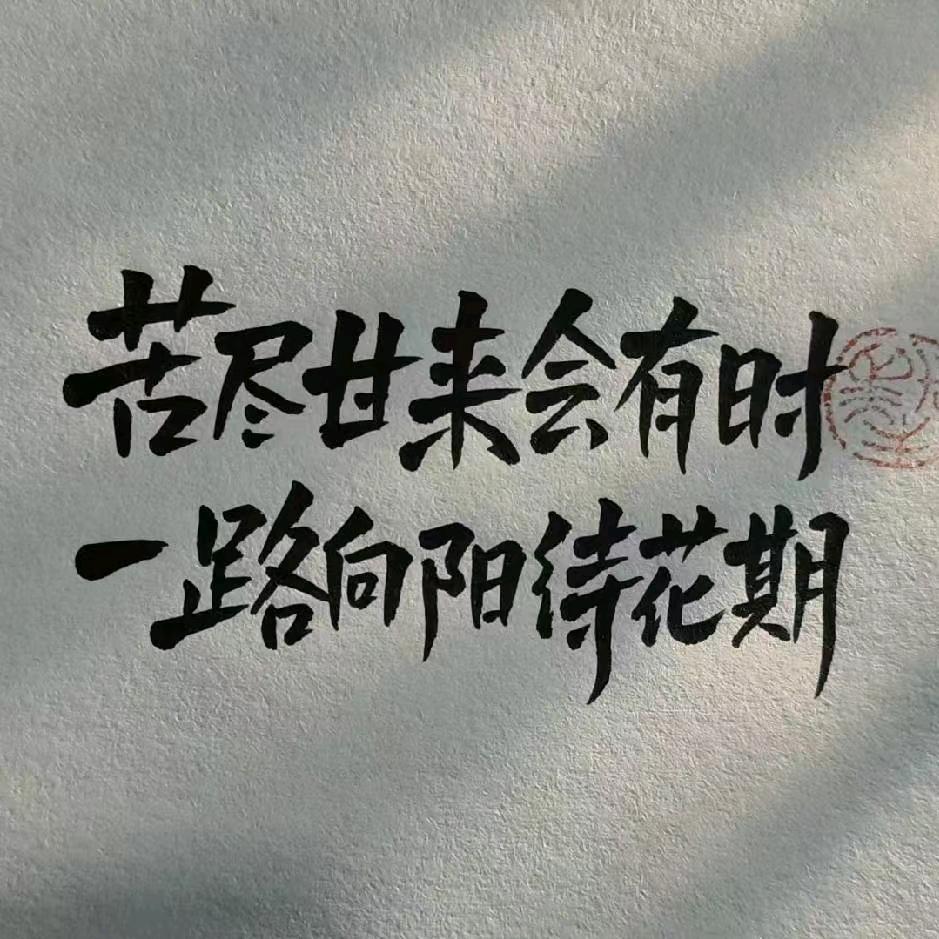 苦尽甘来会有时
一路向阳待花期